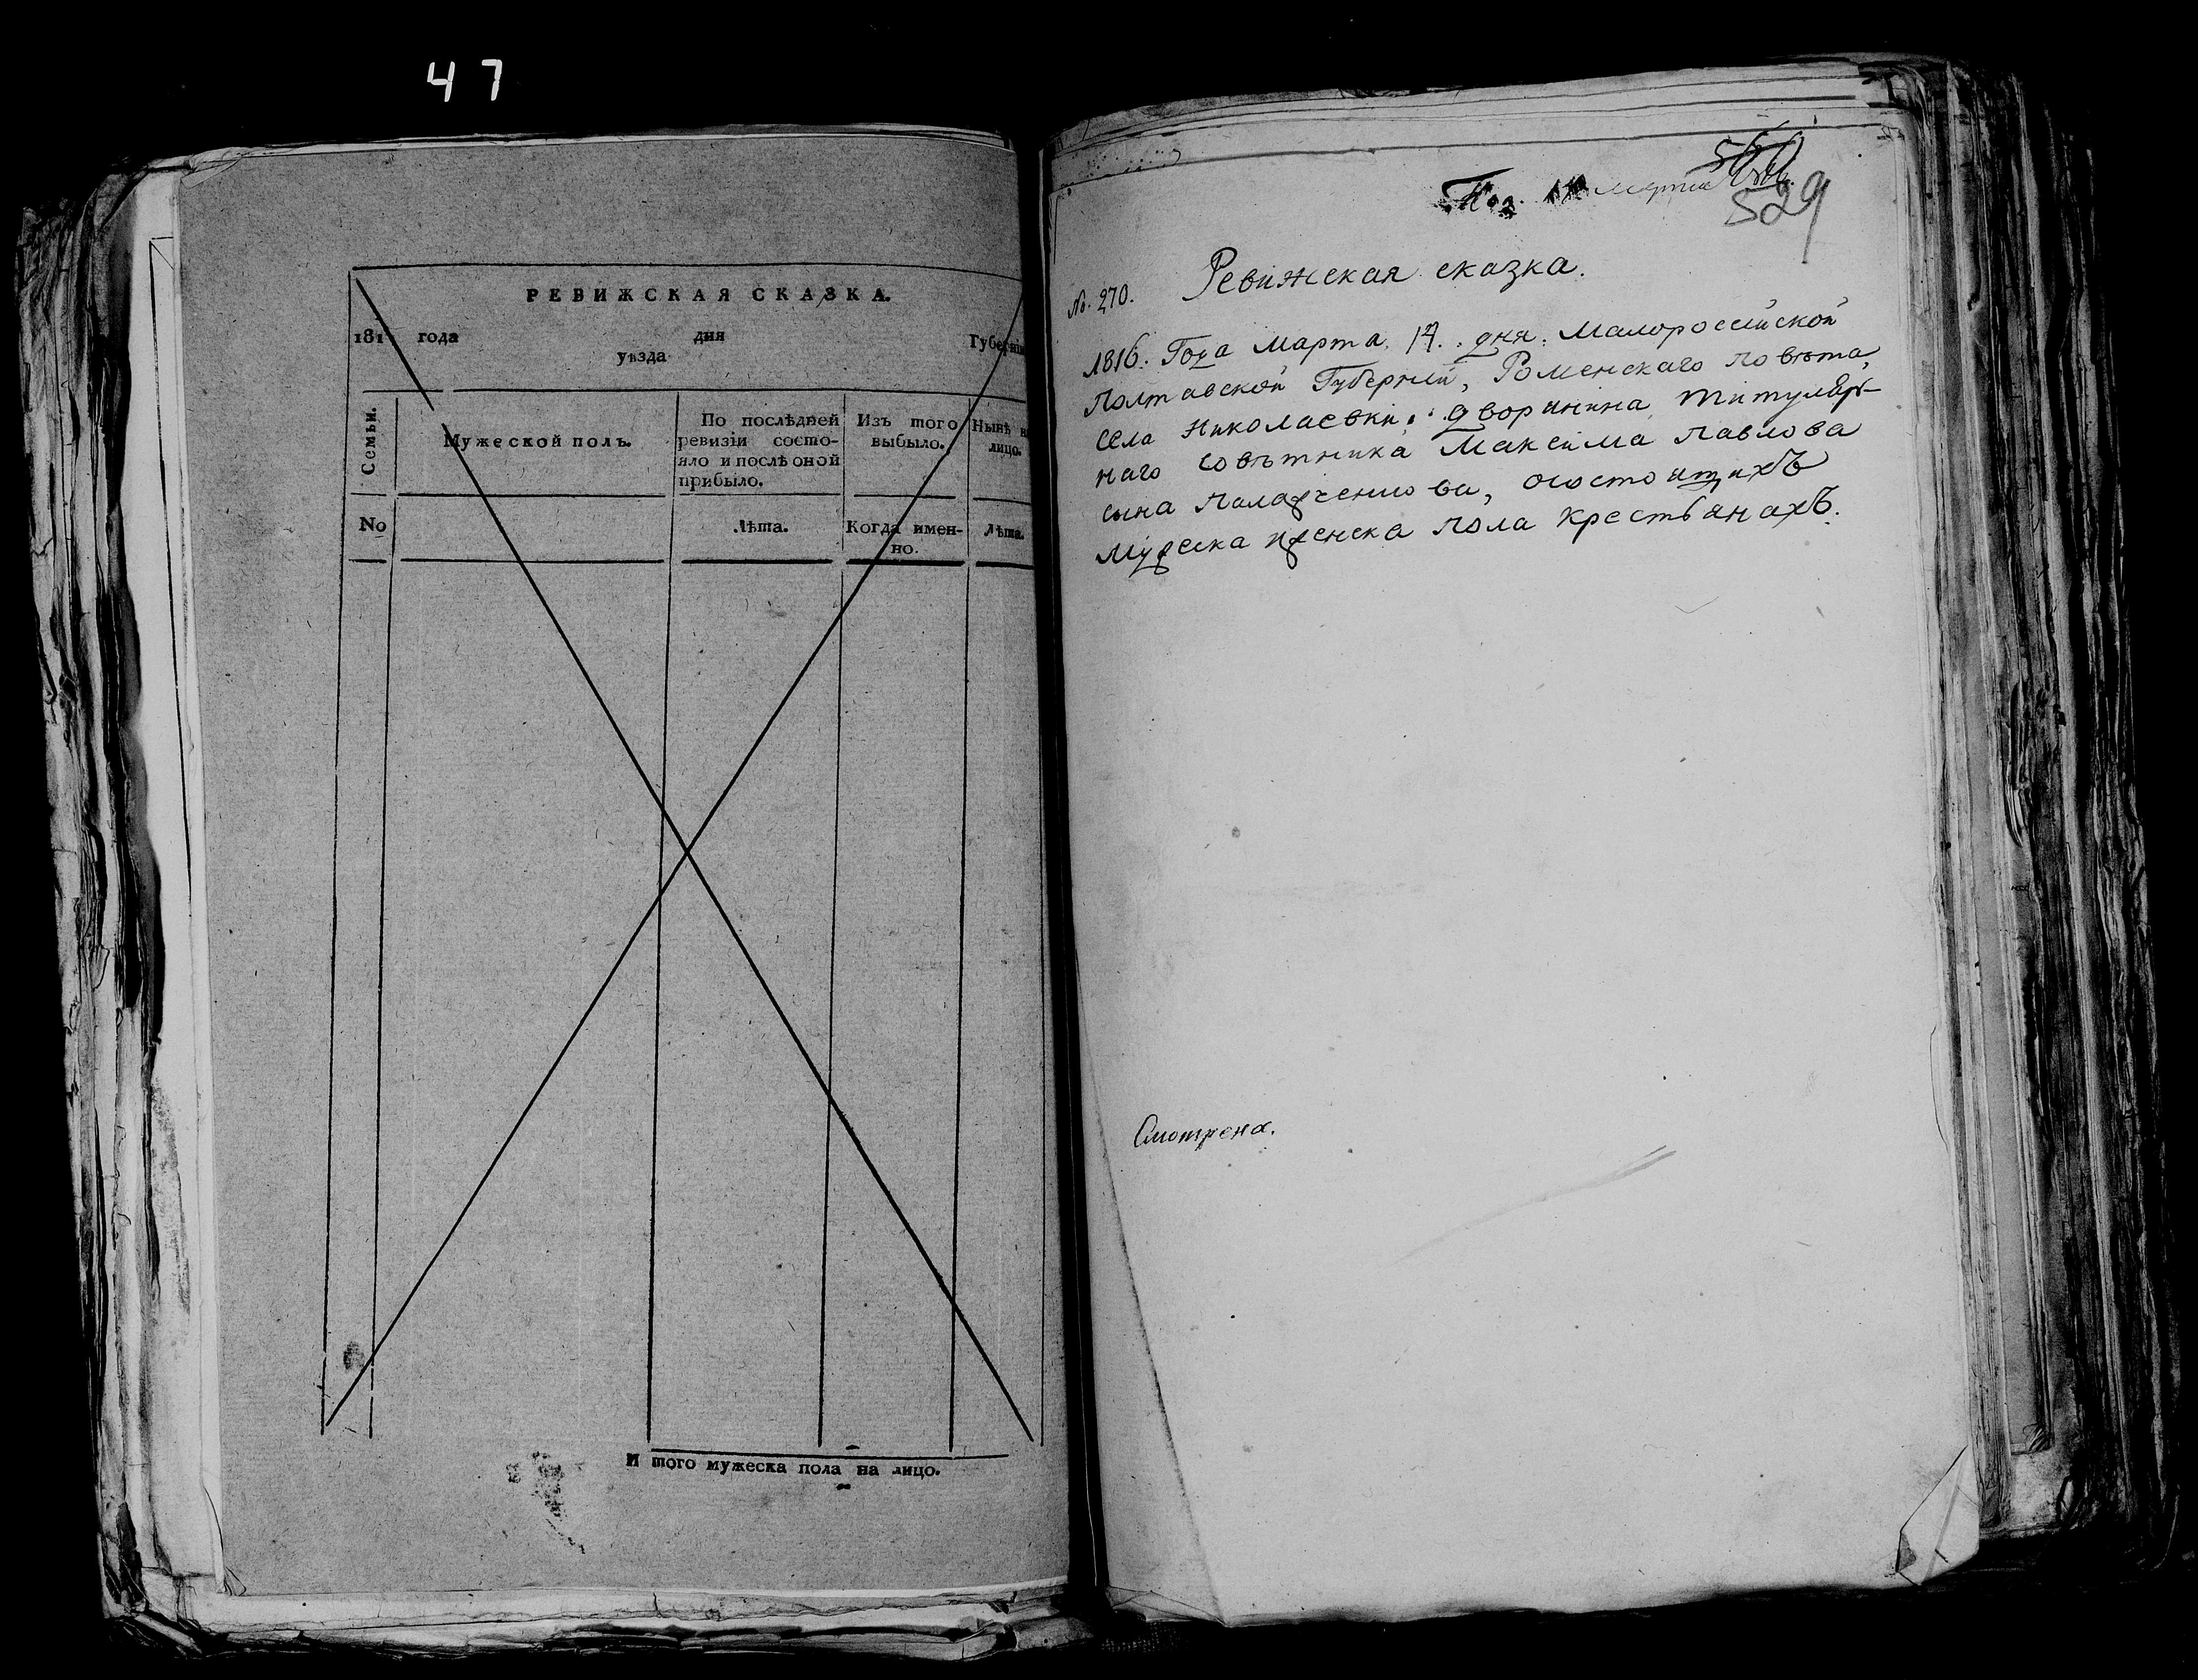 47
РЕВИЖСКАЯ СКАЗКА.
181 года дня Губерніи
уѣзда
Семьи.
Мужеской полъ.
По послѣдней
ревизіи состо-
яло и послѣ оной
прибыло.
Изъ того
выбыло.
Нынѣ н
лицо.
No
Лѣта.
Когда имен-
но.
Лѣта.
И того мужеска пола на лицо.
560
Под. марта
529
Ревижская сказка.
№. 270.
1816. Года марта 17. дня. Малоросейской
Полтавской Губернии, Роменскаго повѣта,
села Николаевки: дворянина титуляр-
наго совѣтника Максима Павлова
сына, осостоящихъ
мужеска женска пола крестьянахъ.
Смотрена.